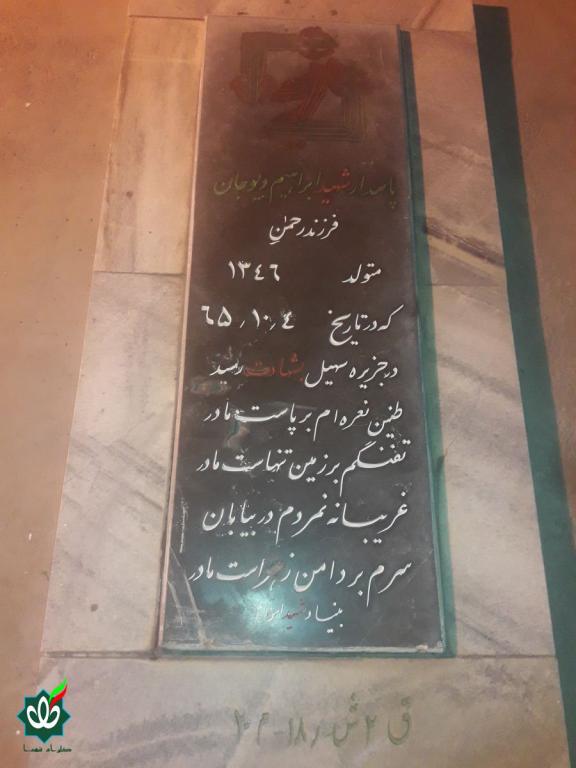 پاسدار شهید ابراهیم ویوجان
فرزند رحمن
متولد ۱۳۴۶
که در تاریخ ۶۵/۱۰/۴
در جزیره سهیل بشهادت رسید
طنین نعره ام بر پاست مادر
تفنگم بر زمین تنهاست مادر
غریبانه نمردم در بیابان
سرم بر دامن زهراست مادر
بنیاد شهید
ق ۲ ش ر ۱۸ - م ۲۰